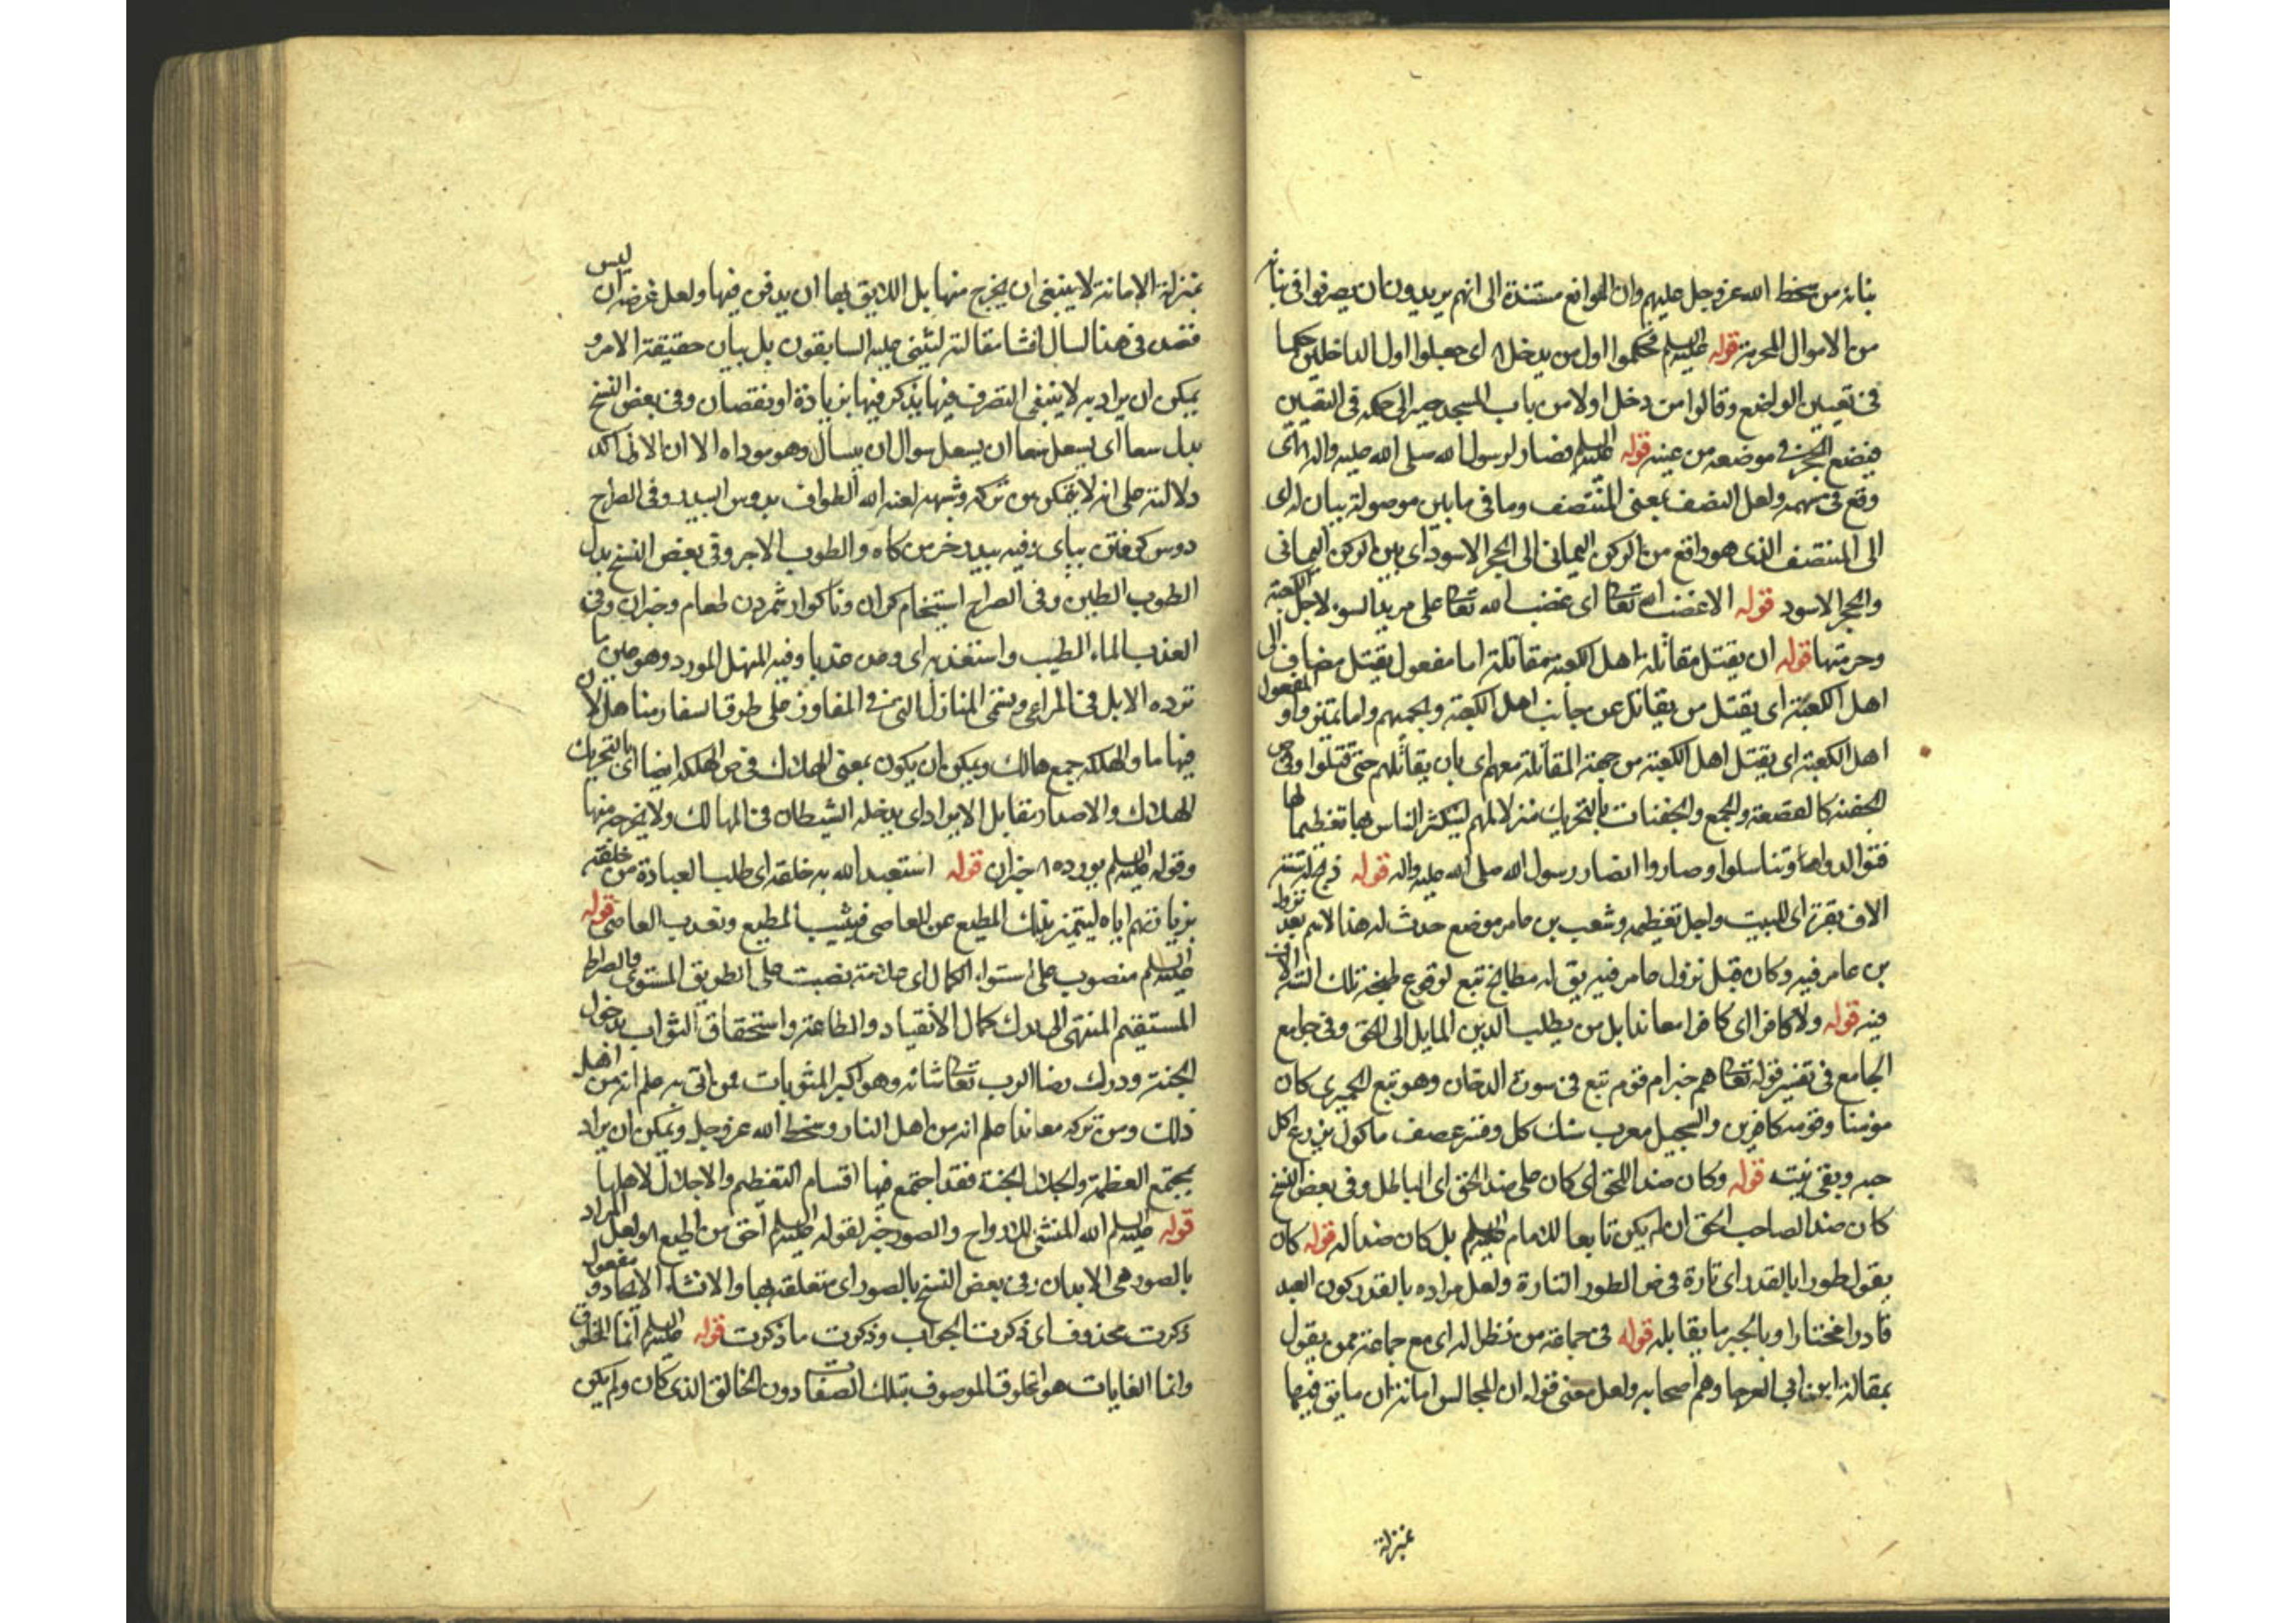 بنائه من سخط الله عز وجل عليهم وان الموانع مستندة الى انهم يريدون ان يصرفوا في بنائه
من الاموال المحرمة قوله عليه السلم فحكموا اول من يدخل اى جعلوا اول الداخلين حكما
في تعيين الواضع وقالوا من دخل اولا من باب المسجد يصير الى حكمه في التعيين
فيضع الحجر في موضعه من عينه قوله عليه السلم فصار لرسول الله صلى الله عليه واله اى
وقع في سهمه ولعل النصف بمعنى المنتصف وما في ما بين موصولة بيان له اى
الى المنتصف الذى هو واقع من الركن اليماني الى الحجر الاسود اى بين الركن اليماني
والحجر الاسود قوله الا غضب الله تعالى اى غضب الله تعالى على مريد السوء لاجل الكعبة
وحرمتها قوله ان يقتل مقاتلة اهل الكعبة مقاتلة اما مفعول يقتل مضاف الى المفعول
اهل الكعبة اى يقتل من يقاتل عن جانب اهل الكعبة ويحميهم واما تميز واو
اهل الكعبة اى يقتل اهل الكعبة من جهة المقاتلة معهم اى بان يقاتلهم حتى قتلوا وفي ص
الجفنة كالقصعة والجمع والجفنات بالتحريك منزلا لهم ليتكثر الناس بها تعظيما لها
فتوالدوا وتناسلوا وصاروا انصار رسول الله صلى الله عليه واله قوله ذبح له ستة
الاف بقرة اى للبيت واجل تعظيمه وشعب بن عامر موضع حدث له هذا الاسم بعد نزول
بن عامر فيه وكان قبل نزول عامر فيه يق له مطابخ تبع لوقوع طبخة تلك الستة الاف
فيه قوله ولا كافرا اى كافرا معاندا بل من يطلب الدين المايل الى الحق وفي جامع
الجامع في تفسير قوله تعالى اهم خير ام قوم تبع في سورة الدخان وهو تبع الحميرى كان
مومنا وقومه كافرين والسجيل معرب سنك كل وفسر عصف ماكول بزرع اكل
حبه وبقى تبنه قوله وكان ضدا للحق اى كان على ضد الحق اى الباطل وفي بعض النسخ
كان ضدا لصاحب الحق ان لم يكن تابعا للامام عليه السلم بل كان ضدا له قوله كان
يقول طورا بالقدر اى تارة في ص الطور التارة ولعل مراده بالقدر كون العبد
قادرا مختارا وبالجبر ما يقابله قوله في جماعة من نظرائه اى مع جماعة ممن يقول
بمقالة ابن ابي العوجا وهم اصحابه ولعل معنى قوله ان المجالس امانة ان ما يق فيها
بمنزلة
بمنزلة الامانة لا ينبغى ان يخرج منها بل اللايق بها ان يدفن فيها ولعل غرضه ان ليس
قصده في هذا السؤال افشا مقالته ليثنى عليه السابقون بل بيان حقيقة الامر و
يمكن ان يراد به لا ينبغى التصرف فيها يذكر فيها بزيادة او نقصان وفي بعض النسخ
بدل سعا اى يسعل سعا ان يسعل سوال ان يسأل وهو موداه الا ان الاول اكد
دلالته على انه لا يتمكن من تركه وشبهه لعنه الله الطواف بدوس البيدر وفي الصراح
دوس كوفتن بپاى وفيه بيدر خرمن كاه والطوب الاجر وفي بعض النسخ بدل
الطوب الطين وفي الصراح استيخام كران وناكوار شمردن طعام وجزان وفي
العذب الماء الطيب واستعذبه اى وجده عذبا وفيه المنهل المورد وهو عين ما
ترده الابل في المراعى وتسمى المنازل التى في المفاوز على طرق السفار مناهل لان
فيها ما والهلكه جمع هالك ويمكن ان يكون بمعنى الهلاك في ص الهلكه ايضا اى بالتحريك
الهلاك والاصدار مقابل الايراد اى يدخله الشيطان في المهالك ولا يخرجه منها
وقوله عليه السلم يورده خبر ان قوله استعبد الله به خلقه اى طلب العبادة من خلقه
بزيارتهم اياه ليتميز بذلك المطيع عن العاصى فيثيب المطيع ويعذب العاصى قوله
عليه السلم منصوب على استواء الكمال اى علامة نصبت على الطريق المستوى والصراط
المستقيم المنتهى الى ادراك كمال الانقياد والطاعة واستحقاق الثواب بدخول
الجنة ودرك رضا الرب تعالى شانه وهو اكبر المثوبات فمن اتى به علم انه من اهل
ذلك ومن تركه معاندا علم انه من اهل النار وسخط الله عز وجل ويمكن ان يراد
بمجتمع العظمة والجلال الجنة فقد اجتمع فيها اقسام التعظيم والاجلال لاهلها
قوله عليه السلم الله المنشئ للارواح والصور خبر لقوله عليه السلم احق من اطيع ولعل المراد
بالصور هى الابدان وفي بعض النسخ بالصور اى متعلقة بها والانشاء الايجاد و مفعول
ذكرت محذوف اى ذكرت الجواب وذكرت ما ذكرت قوله عليه السلم انما المخلوق
وانما الغايات هو المخلوق الموصوف بتلك الصفات دون الخالق الذى كان ولم يكن